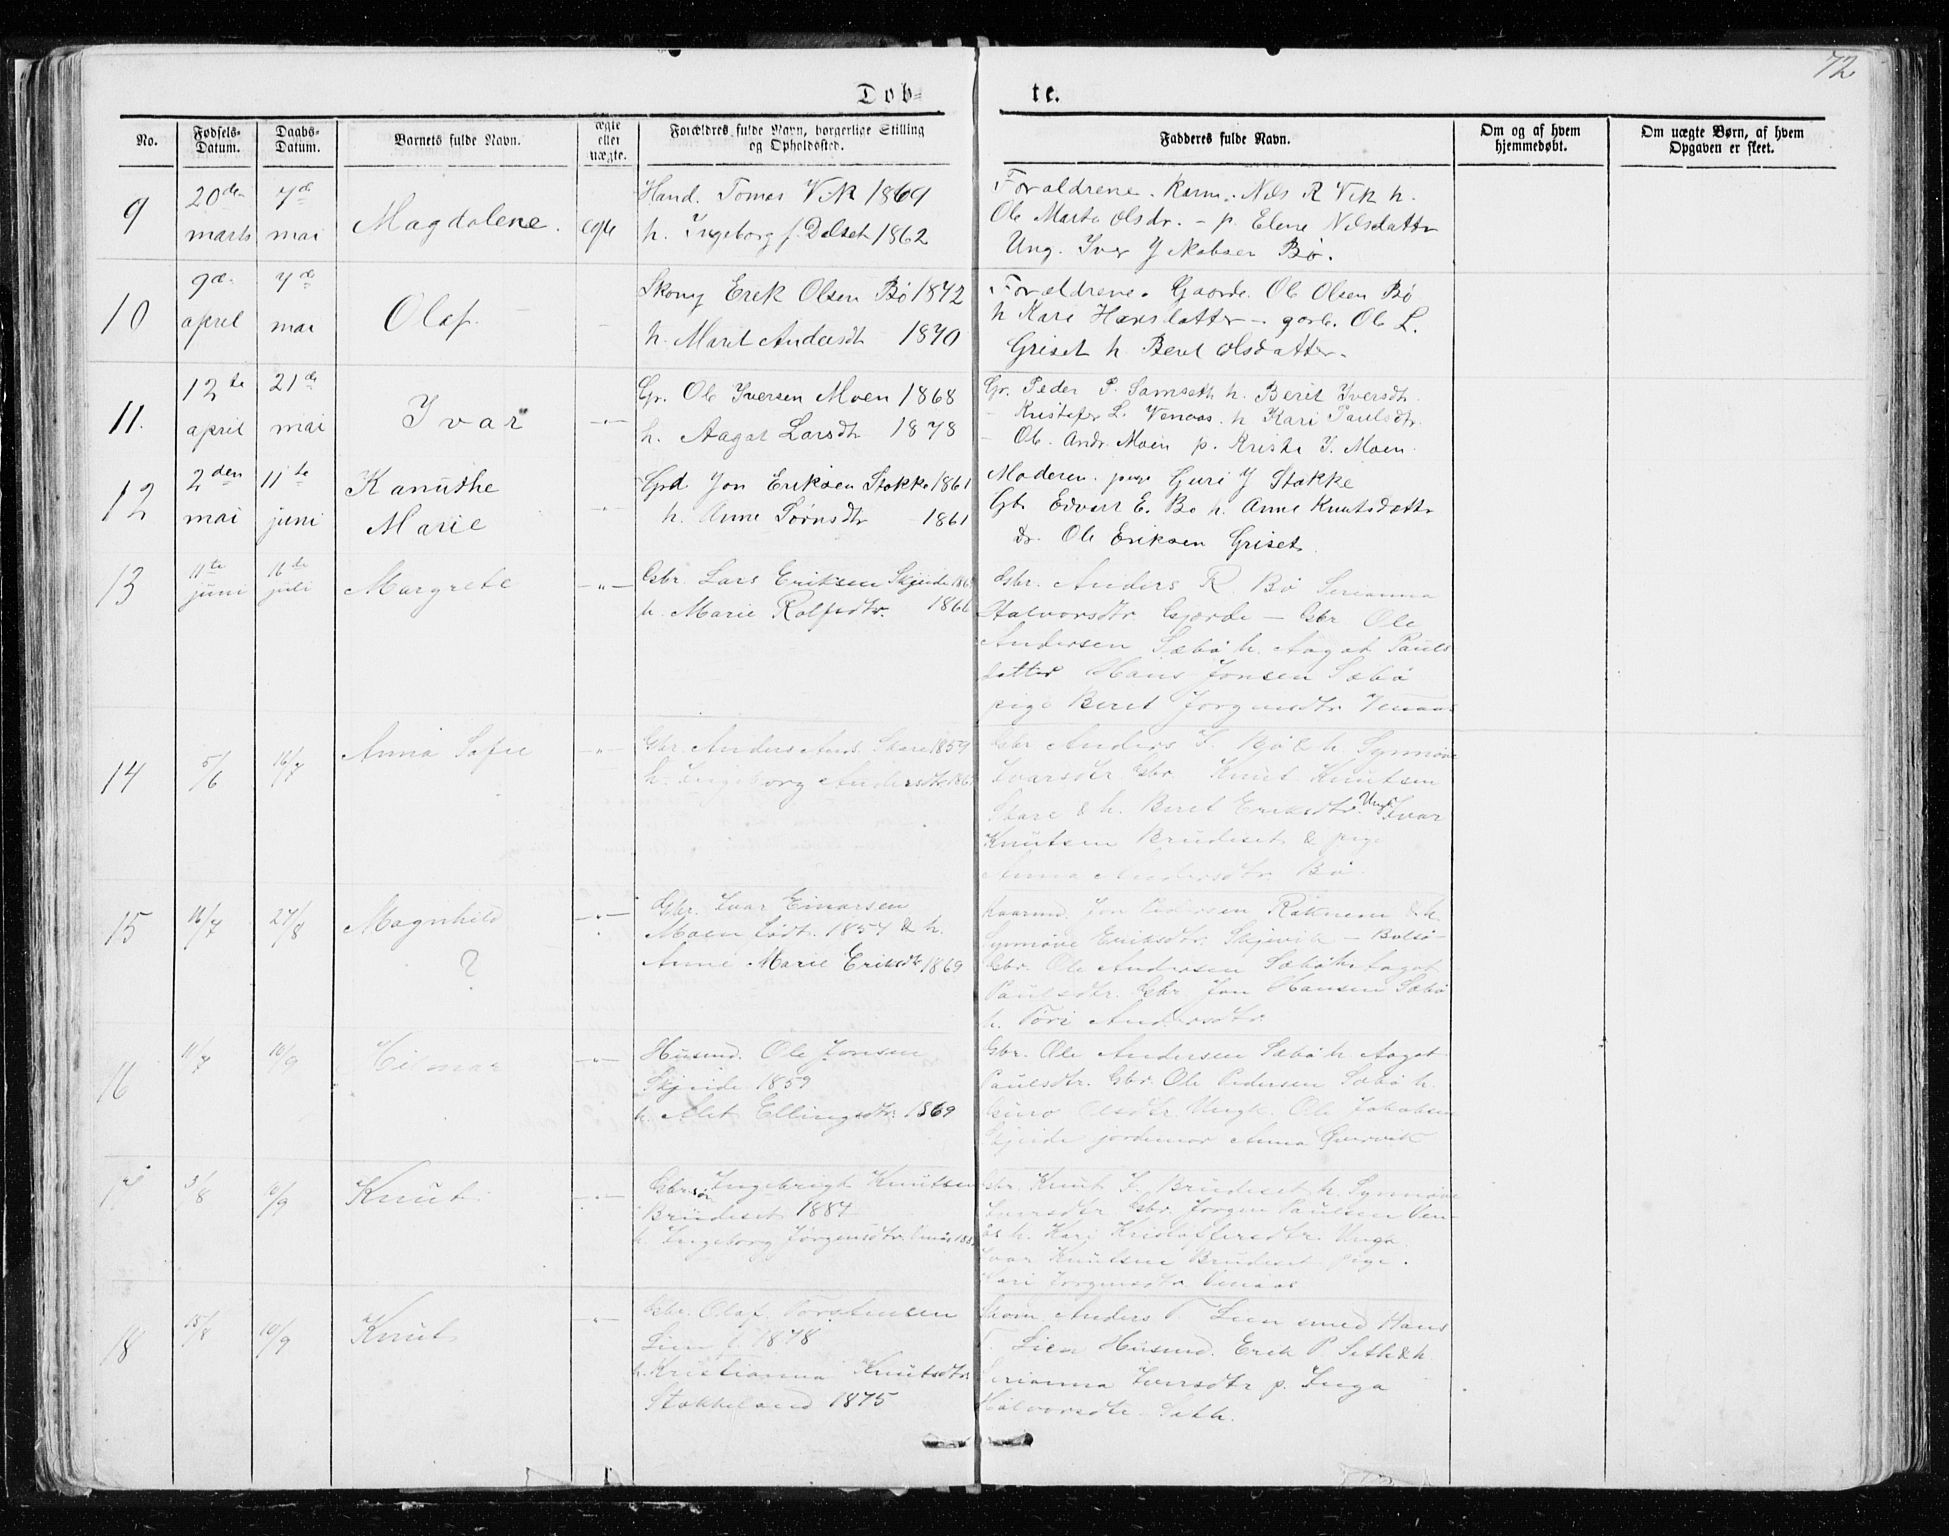 72
Døb-te.
No.
Fødsels-Datum.
Daabs-Datum.
Barnets fulde Navn.
ægte eller uægte.
Forældres fulde Navn, borgerlige Stilling og Opholdssted.
Fadderes fulde Navn.
Om og af hvem hjemmedøbt.
Om uægte Børn, af hvem Opgaven er skeet.
9
20de marts
7de mai
Magdalene.
egte
Hand. Tomas Vik 1869
h. Ingeborg f. Dalset 1862
Foraldrene. Karm. Nils R Vik h.
Ole Marta Olsdr. - p. Elene Nilsdatter
Ung. Iver Jakobsen Bø.
10
9de april
7de mai
Olaf.
Skomg Erik Olsen Bø 1872
h. Marit Andersdt 1870
Foraldrene. Gaarde. Ole Olsen Bø
h Kari Hansdatter - garb. Ole L.
Griset h. Beret Olsdatter.
11.
12te april
21de mai
Ivar
-"-
Gr. Ole Iversen Moen 1868
h. Aagat Larsdtr 1878
Gr. Peder P. Samseth h. Berit Iversdtr.
- Kristofer L. Venaas. h Kari Paulsdtr.
- Ole. Andr. Moen p. Kristi I. Moen.
12
2den mai
11te juni
Kanuthe
Marie
-"-
Grd Jon Eriksen Stokke 1861
h. Anne Sørnsdtr 1861
Moderen. pige Guri J Stokke
Gb. Edvart E. Bo h. Anne Knutsdatter
dr. Ole Eriksen Griset
13
11te juni
16de juli
Margrete
-"-
Gbr. Lars Eriksen Skjeide
h. Marie Rolfsdtr. 1866
Gbr. Anders R. Bø Serianna
Halvorsdtr Gjærde - Gbr Ole
Andersen Sæbø h. Aagot Pauls
datter Hans Jonsen Sæbø
pige Beret Jorgensdtr Venaas
14
5/6
16/7
Anna Sofie
-"-
Gbr. Anders And. Skare 1857
h. Ingeborg Andersdtr
Gbr Anders I. Bø & h. Synnøve
Ivarsdtr. Gbr. Knut Knutsen
Skare & h. Beret Eriksdtr. Ungk. Ivar
Knutsen Brudeset & pige
Anna Andersdtr Bø
15
16/7
27/8
Magnhild
?
-"-
Gbr. Ivar Einarsen
Moen født. 1857 & h.
Anne Marie Eriksdtr 1869
Kaarmd. Jon Pedersen Røknem & h.
Synnøve Eriksdtr. Skjevik - Bolsø
Gbr. Ole Andersen Sæbø h. Aagot
Paulsdtr. Gbr Jon Hansen Sæbø
h. Andersdtr
16
11/7
10/9
Hilmar
-"-
Husmd. Ole Jonsen
Skjeide 1859
h. Alet Ellingsdtr. 1869
Gbr. Ole Andersen Sæbø h Aagot
Paulsdtr. Gbr. Ole Pedersen Sæbø h.
Olsdtr Ungk. Ole Jakobsen
Skjeide jordmor Anna Øvervik
17
3/8
10/9
Knut
-"-
Gbrsøn Ingebrigt Knutsen
Brudeset 1884
h. Ingeborg Jørgensdtr.
Gbr. Knut I. Brudeset h. Synnøve
Iversdtr Gbr. Jorgen Paulsen Ven-
ås h. Kari Kristoffersdtr. Ungk.
Ivar Knutsen Brudeset pige.
Kari Jorgensdtr Venaas
18
15/8
10/9
Knut
-"-
Gbr. Olaf Torstensen
Lien f. 1878
h. Kristianna Knutsdtr
Stokkeland 1875
Skom Anders T. Lien smed Hans
T. Lien Husmd. Erik P. Seth & h
Serianna Iversdtr p. Inga
Halvorsdtr Seth.